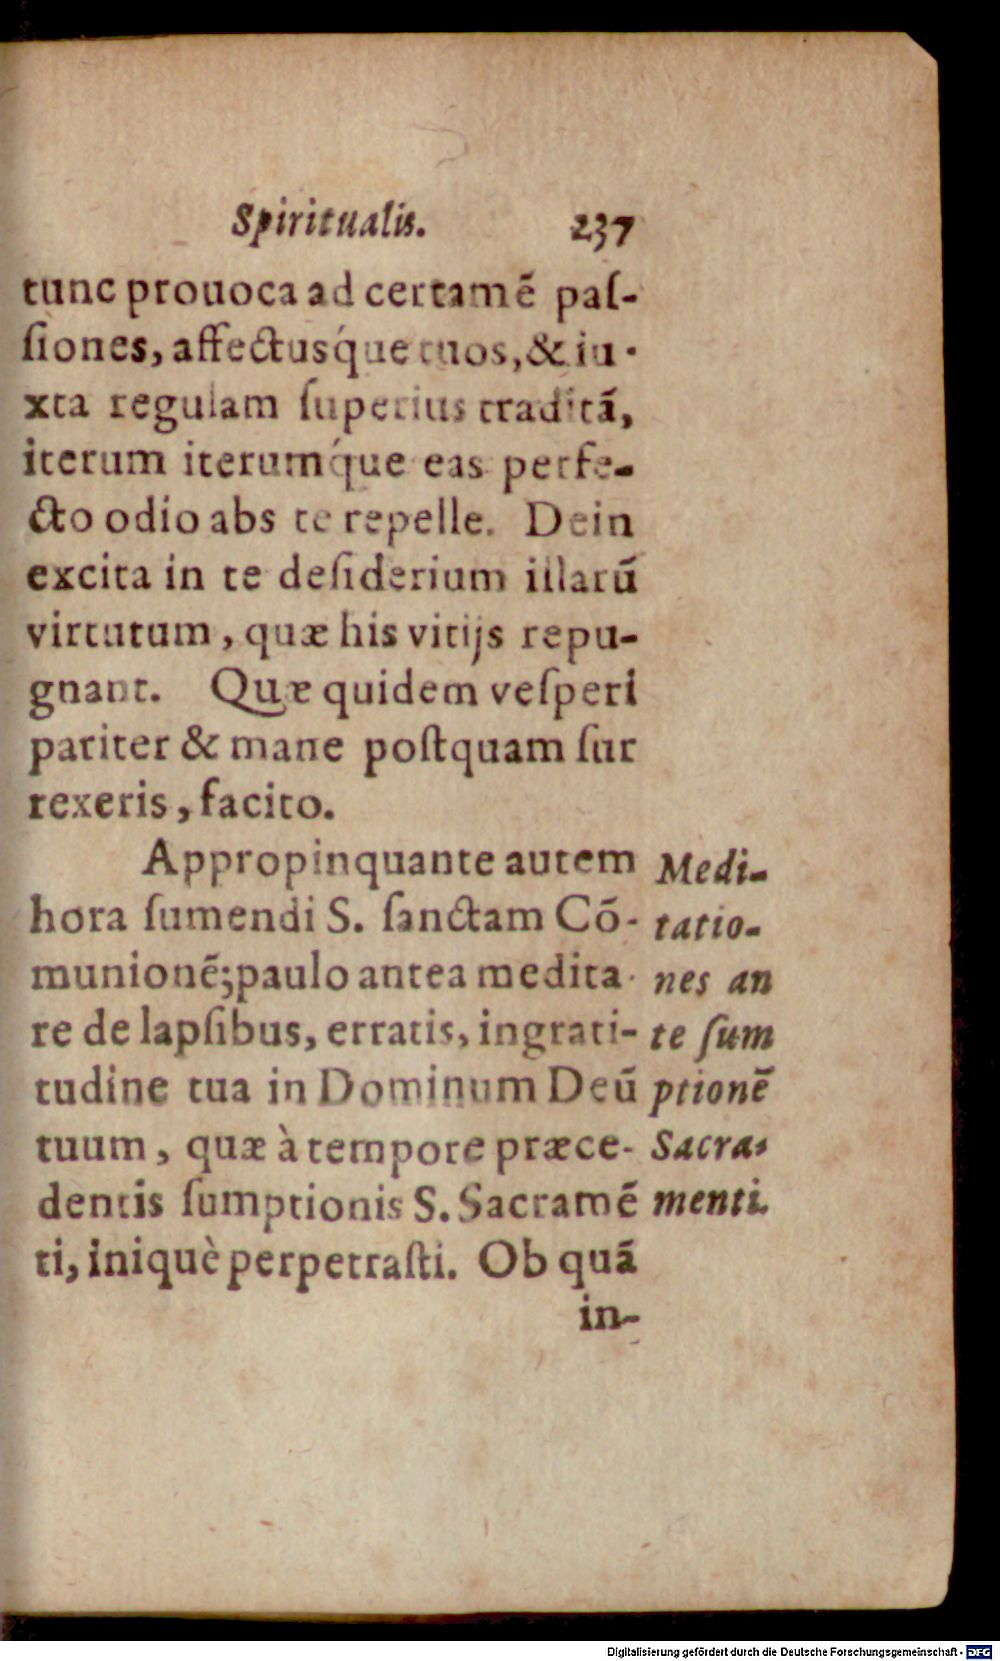 Spiritualis. 237
tunc prouoca ad certamē paſ-
ſiones, affectusq́ue tuos, & iu-
xta regulam ſuperius traditā,
iterum iterumq́ue eas perfe-
cto odio abs te repelle. Dein
excita in te deſiderium illarū
virtutum, quæ his vitijs repu-
gnant. Quæ quidem veſperi
pariter & mane poſtquam ſur
rexeris, facito.
Appropinquante autem
hora ſumendi S. ſanctam Cō-
munionē; paulo antea medita-
re de lapſibus, erratis, ingrati-
tudine tua in Dominum Deū
tuum, quæ à tempore præce-
dentis ſumptionis S. Sacramē
ti, iniquè perpetraſti. Ob quā
in-
Medi-
tatio-
nes an
te ſum
ptionē
Sacra-
menti.
Digitalisierung gefördert durch die Deutsche Forschungsgemeinschaft - DFG